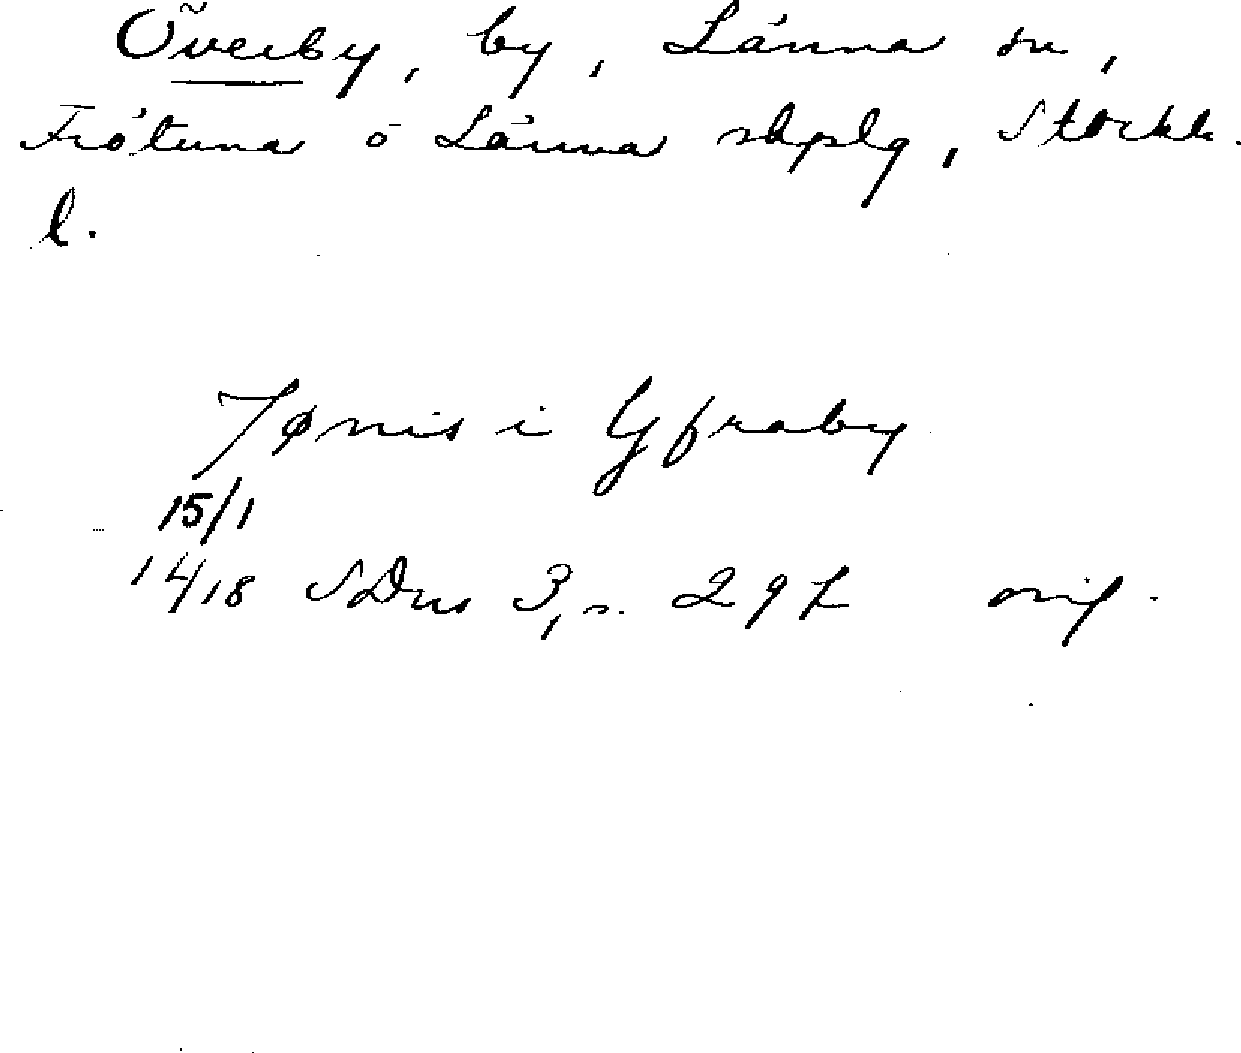 Överby, by, Länna sn,
Frötuna o Länna skplg, Stockh.
l.
Jønis i Yfraby
15/1
14/18 SDns 3, s. 297 orig.